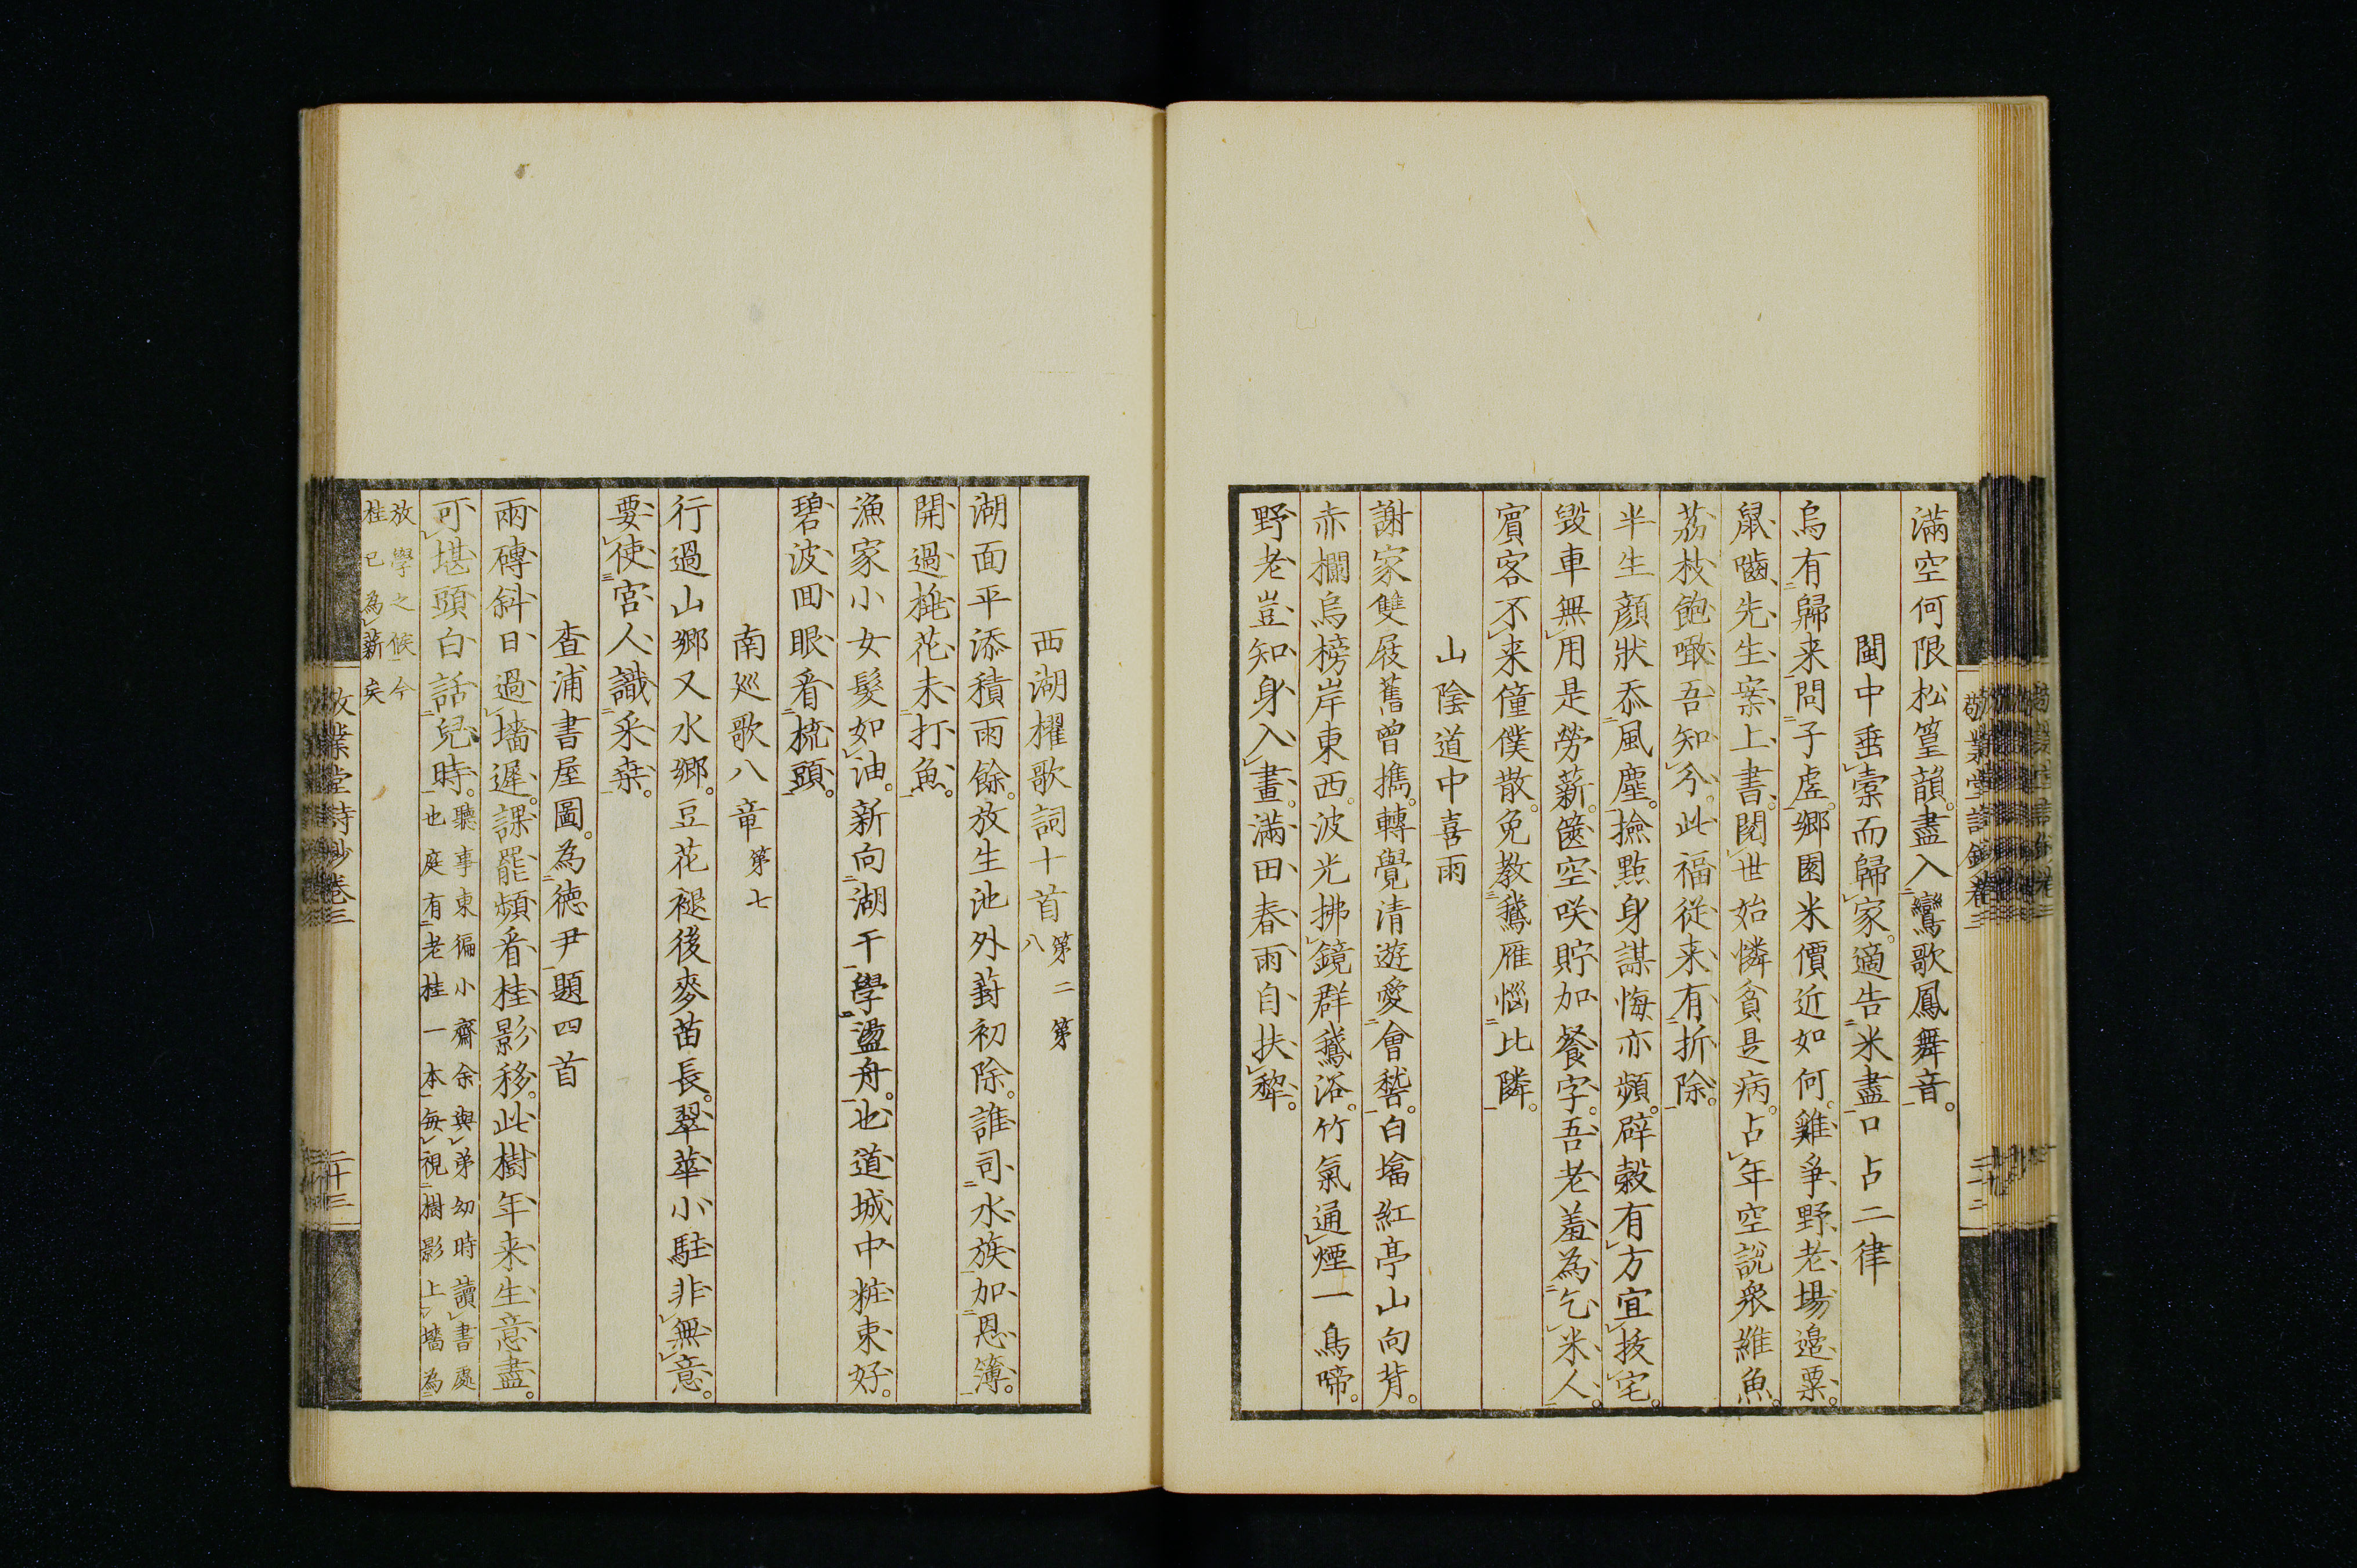 滿空何限松篁韻。盡入鸞歌鳳舞音。
閩中垂橐而歸家。適告米盡口占二律
烏有歸来問子虛。鄉園米價近如何。雞爭野老場邊粟。
鼠嚙先生案上書。閱世始憐貧是病。占年空說衆維魚。
荔枝飽噉吾知分。此福從来有折除。
半生顏狀忝風塵。撿點身謀悔亦頻。辟穀有方宜拔宅。
毀車無用是勞薪。篋空咲貯加餐字。吾老羞為乞米人。
賓客不来僮僕散。免教鵞雁惱比隣。
山陰道中喜雨
謝家雙屐舊曾擕。轉覺清遊愛會嵇。白塔紅亭山向背。
赤欄烏榜岸東西。波光拂鏡群鵞浴。竹氣通煙一鳥啼。
野老豈知身入畫。滿田春雨自扶犂。
敬業堂詩鈔卷三
二十二
西湖櫂歌詞十首第二第
八
湖面平添積雨餘。放生池外葑初除。誰司水族加恩簿。
開過桃花未打魚。
漁家小女髮如油。新向湖干學盪舟。也道城中粧束好。
碧波回眼看梳頭。
南廵歌八章第七
行過山鄉又水鄉。豆花褪後麥苗長。翠華小駐非無意。
要使宮人識采桒。
查浦書屋圖。為德尹題四首
兩磚斜日過墻遲。課罷頻看桂影移。此樹年来生意盡。
可堪頭白話兒時。
聽事東偏小齋余與弟幼時讀書處
也庭有老桂一本每視樹影上墻為
放學之候今
桂已為薪矣
敬業堂詩鈔卷三
二十三